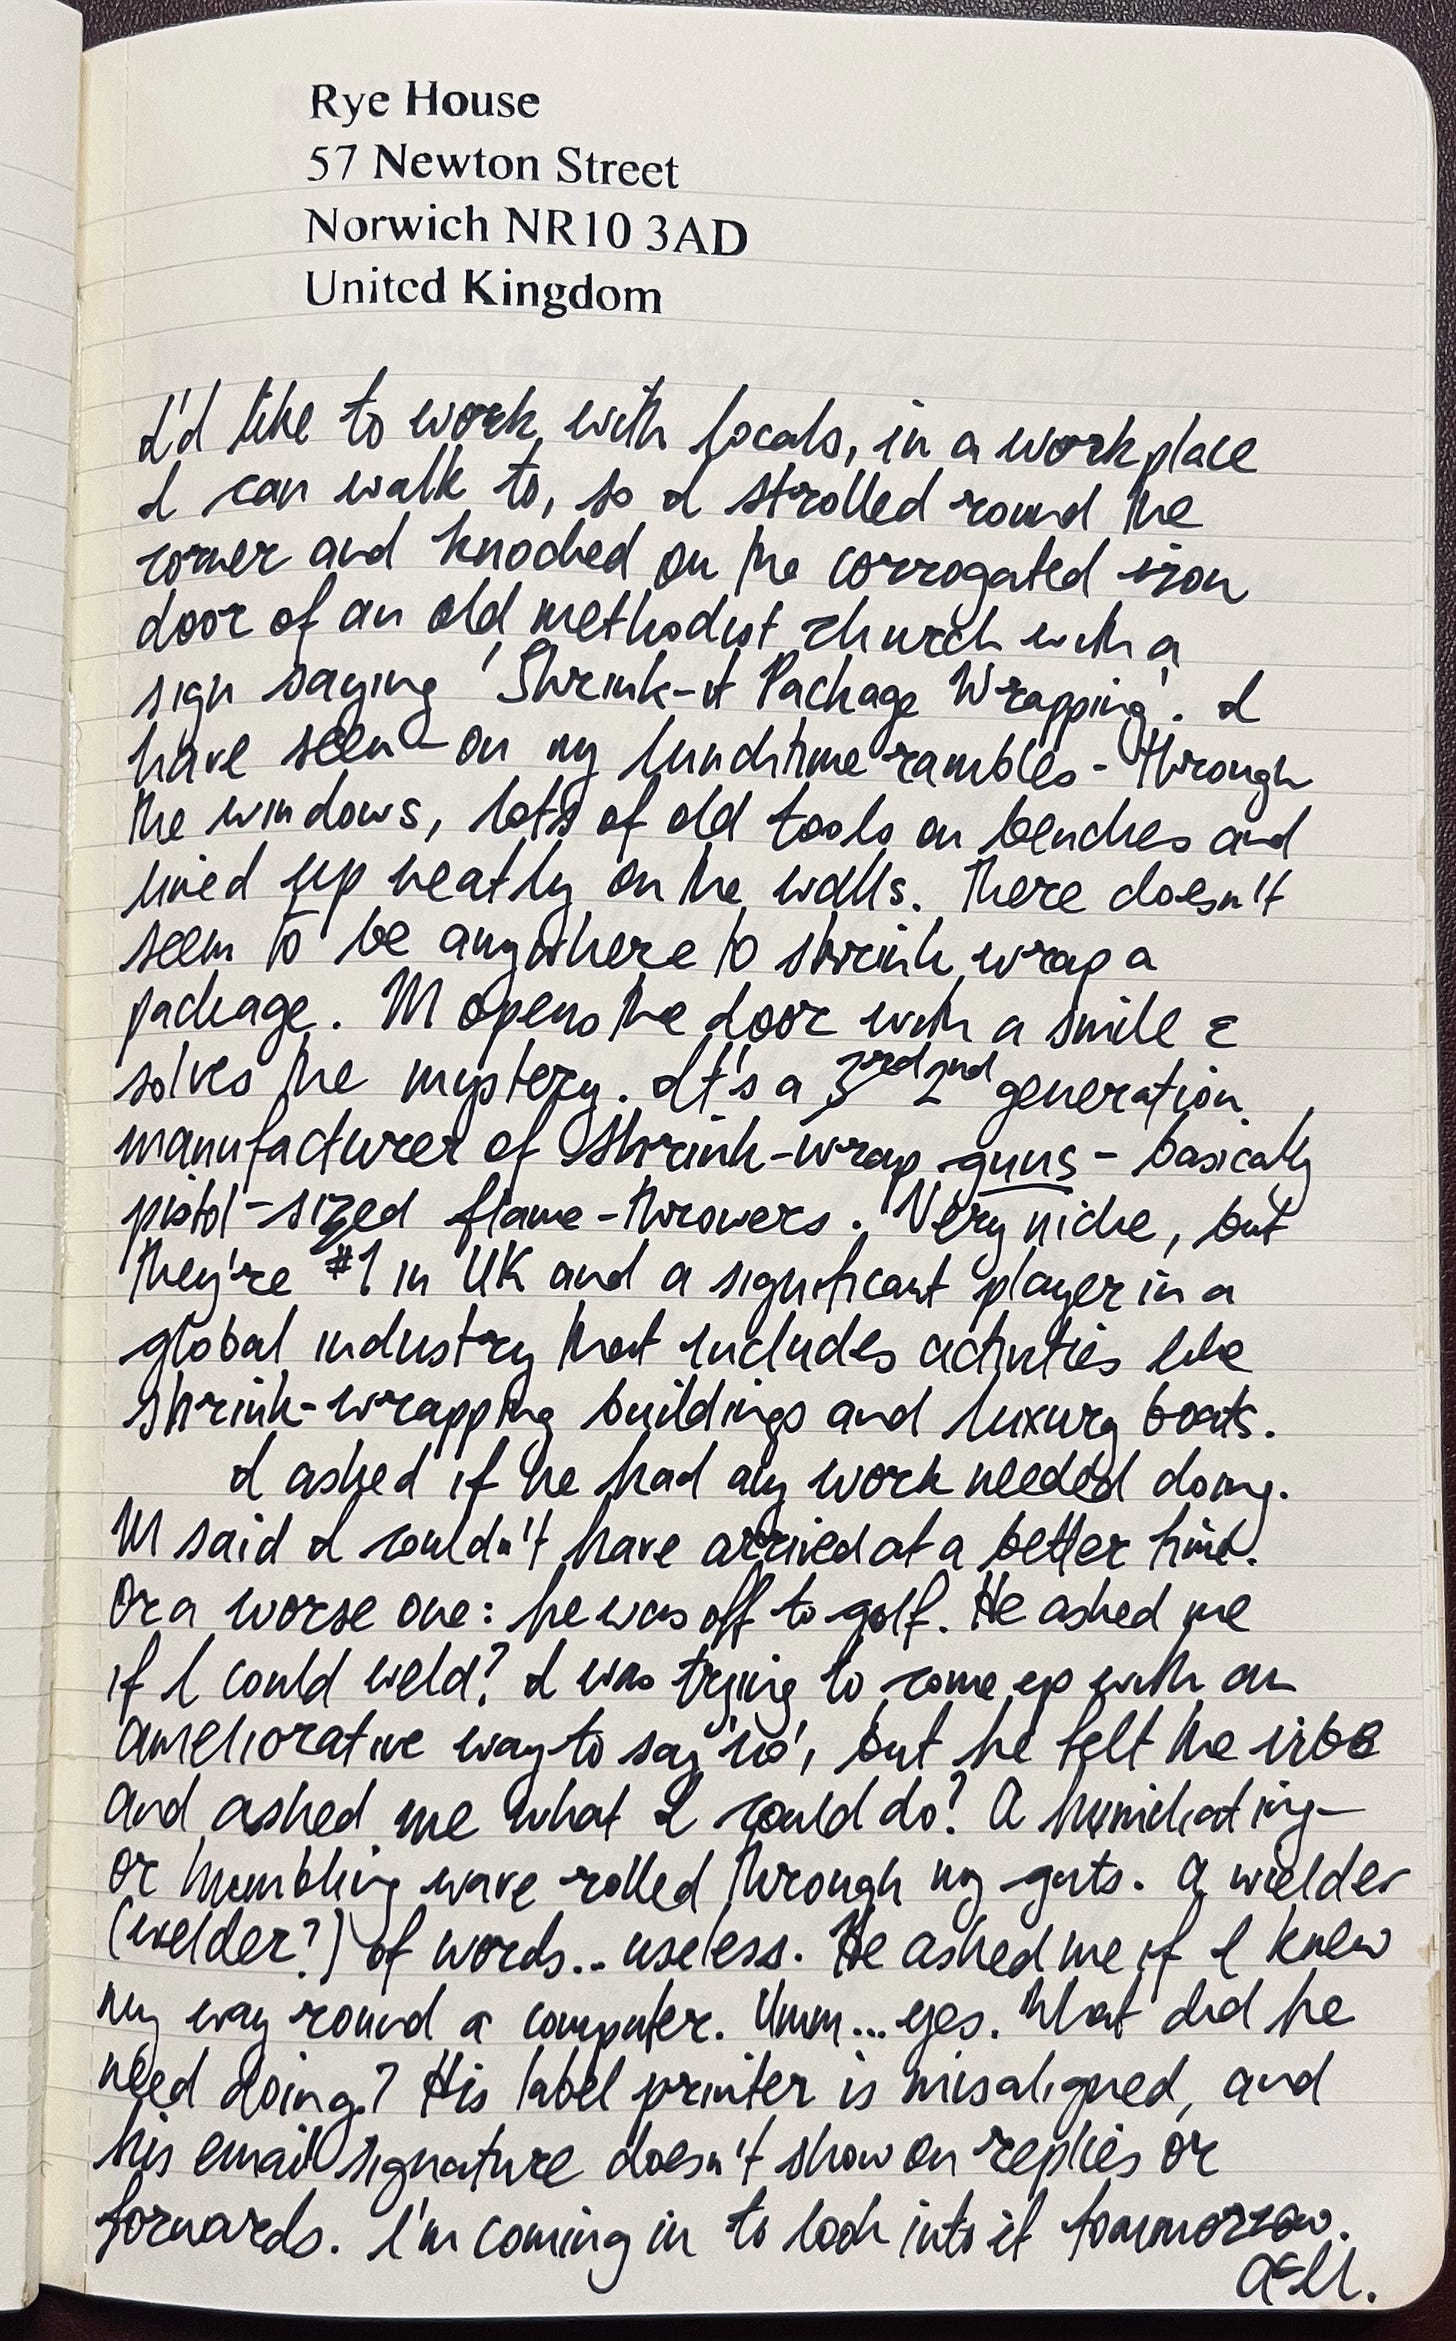 Rye House
57 Newton Street
Norwich NR10 3AD
United Kingdom
I'd like to work with locals, in a workplace
I can walk to, so I strolled round the
corner and knocked on the corrogated iron
door of an old methodist church with a
sign saying 'Shrink-it Package Wrapping'. I
have seen - on my lunchtime rambles - through
the windows, lots of old tools on benches and
lined up neatly on the walls. There doesn't
seem to be anywhere to shrink wrap a
package. M opens the door with a smile &
solves the mystery. It's a 3rd 2nd generation
manufacturer of shrink-wrap guns - basically
pistol-sized flame-throwers. Very niche, but
they're #1 in UK and a significant player in a
global industry that includes activities like
shrink-wrapping buildings and luxury boats.
I asked if he had any work needed doing.
M said I couldn't have arrived at a better time.
Or a worse one: he was off to golf. He asked me
if I could weld? I was trying to come up with an
ameliorative way to say 'no', but he felt the vibe
and asked me what I could do? A humiliating-
or humbling wave rolled through my guts. A wielder
(welder?) of words.. useless. He asked me if I knew
my way round a computer. Umm... yes. What did he
need doing? His label printer is misaligned, and
his email signature doesn't show on replies or
forwards. I'm coming in to look into it tommorrow.